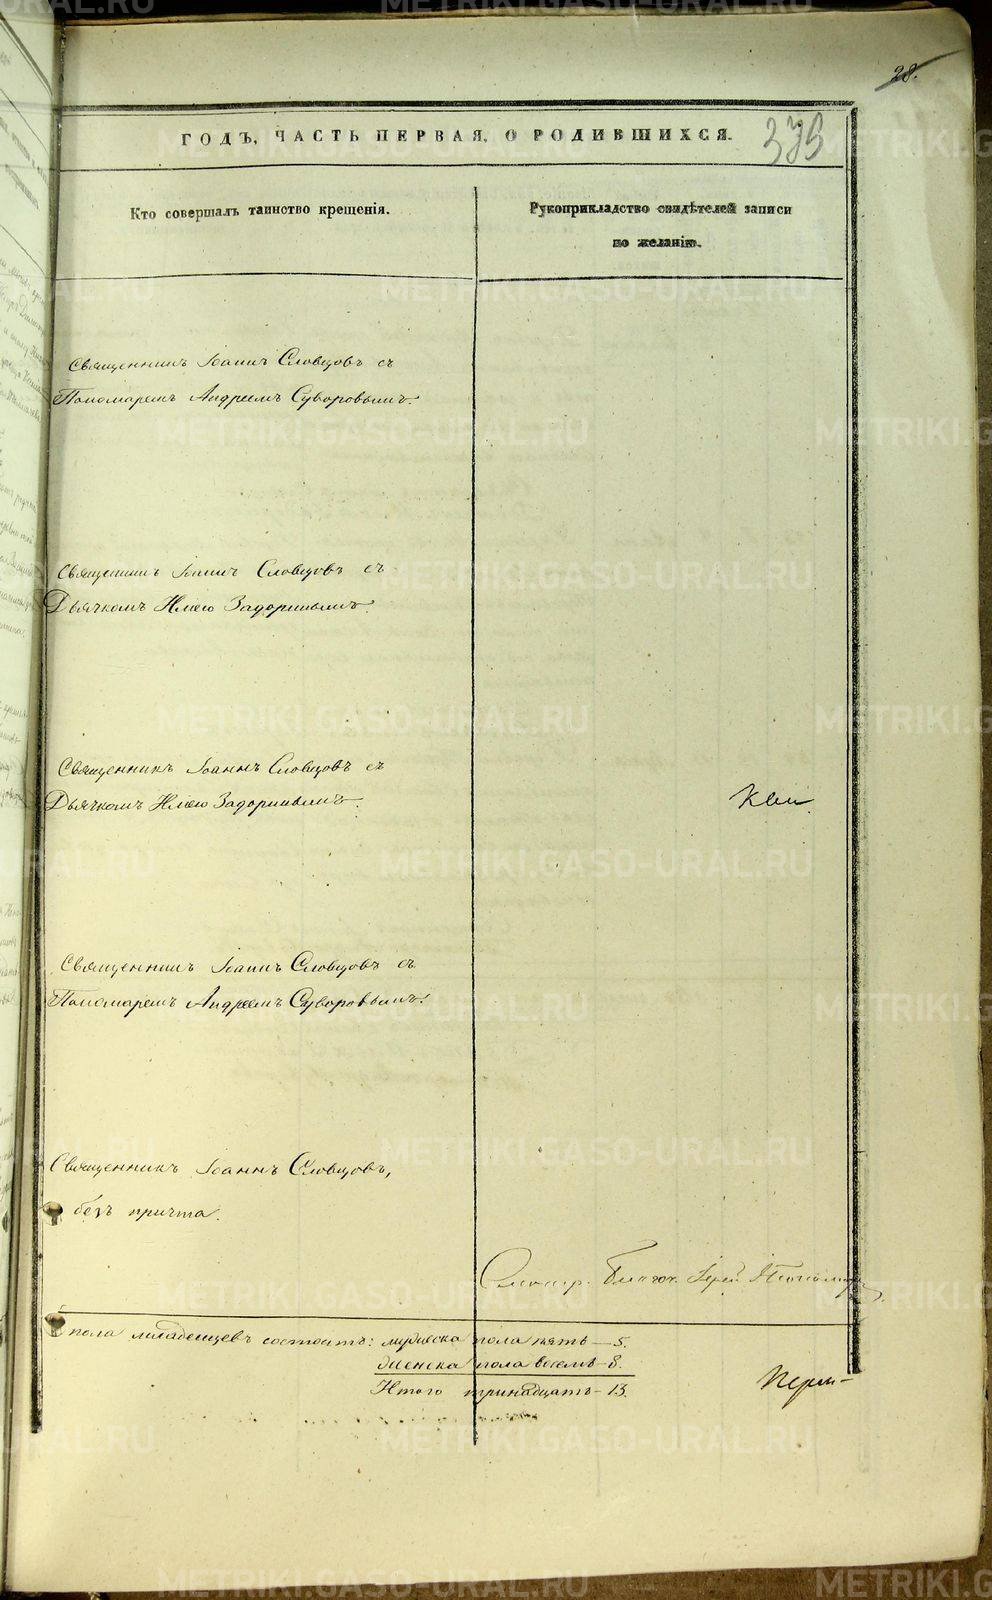 28.
ГОДЪ, ЧАСТЬ ПЕРВАЯ, О РОДИВШИХСЯ.
379
Кто совершалъ таинство крещенія.
Рукоприкладство свидѣтелей записи
по желанію.
Священникъ Іоаннъ Словцовъ съ
Пономаремъ Андреемъ Суворовымъ.
Священникъ Іоаннъ Словцовъ съ
Дьячкомъ Иліею Задоринымъ.
Священникъ Іоаннъ Словцовъ съ
Дьячкомъ Иліею Задоринымъ.
Священникъ Іоаннъ Словцовъ съ
Пономаремъ Андреемъ Суворовымъ.
Священникъ Іоаннъ Словцовъ,
безъ причта.
Смотр. Благоч. Іерей
пола младенцевъ состоитъ: мужеска пола пять — 5.
женска пола восемь — 8.
Итого тринадцать — 13.
METRIKI.GASO-URAL.RU